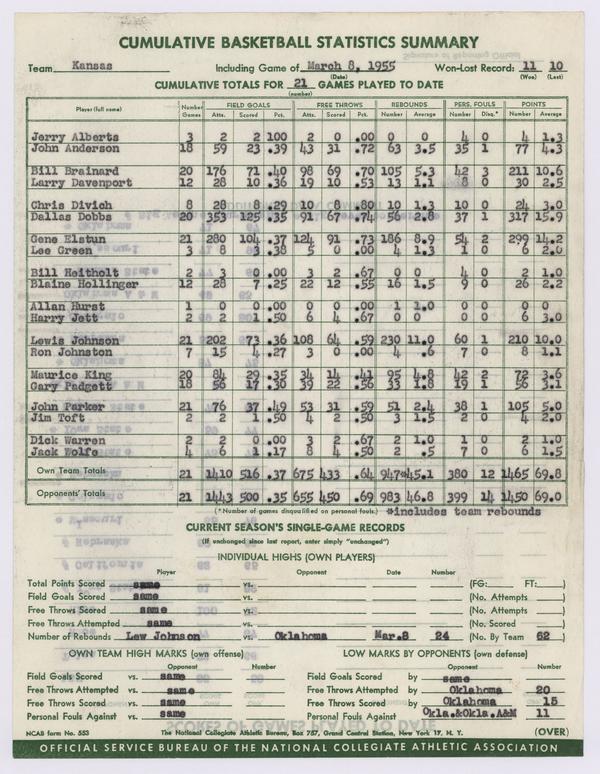 CUMULATIVE BASKETBALL STATISTICS SUMMARY
Team Kansas Including Game of March 8, 1955 Won-Lost Record: 11 10
(Date) (Won) (Lost)
CUMULATIVE TOTALS FOR 21 GAMES PLAYED TO DATE
(number)
Player (full name) Number Games FIELD GOALS FREE THROWS REBOUNDS PERS. FOULS POINTS
Atts. Scored Pct. Atts. Scored Pct. Number Average Number Disq.* Number Average
Jerry Alberts 3 2 2 100 2 0 .00 0 0 4 0 4 1.3
John Anderson 18 59 23 .39 43 31 .72 63 3.5 35 1 77 4.3
Bill Brainard 20 176 71 .40 98 69 .70 105 5.3 42 3 211 10.6
Larry Davenport 12 28 10 .36 19 10 .53 13 1.1 8 0 30 2.5
Chris Divich 8 28 8 .29 10 8 .80 10 1.3 10 0 24 3.0
Dallas Dobbs 20 353 125 .35 91 67 .74 56 2.8 37 1 317 15.9
Gene Elstun 21 280 104 .37 124 91 .73 186 8.9 54 2 299 14.2
Lee Green 3 8 3 .38 5 0 .00 4 1.3 1 0 6 2.0
Bill Heitholt 2 3 0 .00 3 2 .67 0 0 4 0 2 1.0
Blaine Hollinger 12 28 7 .25 22 12 .55 16 1.5 9 0 26 2.2
Allan Hurst 1 0 0 .00 0 0 .00 1 1.0 0 0 0 0
Harry Jett 2 2 1 .50 6 4 .67 0 0 0 0 6 3.0
Lewis Johnson 21 202 73 .36 108 64 .59 230 11.0 60 1 210 10.0
Ron Johnston 7 15 4 .27 3 0 .00 4 .6 7 0 8 1.1
Maurice King 20 84 29 .35 34 14 .41 95 4.8 42 2 72 3.6
Gary Padgett 18 56 17 .30 39 22 .56 33 1.8 19 1 56 3.1
John Parker 21 76 37 .49 53 31 .59 51 2.4 38 1 105 5.0
Jim Toft 2 2 1 .50 4 2 .50 3 1.5 2 0 4 2.0
Dick Warren 2 2 0 .00 3 2 .67 2 1.0 1 0 2 1.0
Jack Wolfe 4 6 1 .17 8 4 .50 2 .5 7 0 6 1.5
Own Team Totals 21 1410 516 .37 675 433 .64 947*45.1 380 12 1465 69.8
Opponents' Totals 21 1443 500 .35 655 450 .69 983 46.8 399 14 1450 69.0
(*Number of games disqualified on personal fouls.) *includes team rebounds
CURRENT SEASON'S SINGLE-GAME RECORDS
(If unchanged since last report, enter simply "unchanged")
INDIVIDUAL HIGHS (OWN PLAYERS)
Player Opponent Date Number
Total Points Scored same vs. (FG: FT: )
Field Goals Scored same vs. (No. Attempts )
Free Throws Scored same vs. (No. Attempts )
Free Throws Attempted same vs. (No. Scored )
Number of Rebounds Lew Johnson vs. Oklahoma Mar.8 24 (No. By Team 62 )
OWN TEAM HIGH MARKS (own offense) LOW MARKS BY OPPONENTS (own defense)
Opponent Number Opponent Number
Field Goals Scored vs. same Field Goals Scored by same
Free Throws Attempted vs. same Free Throws Attempted by Oklahoma 20
Free Throws Scored vs. same Free Throws Scored by Oklahoma 15
Personal Fouls Against vs. same Personal Fouls Against by Okla.&Okla.A&M 11
NCAB form No. 553 The National Collegiate Athletic Bureau, Box 757, Grand Central Station, New York 17, N. Y. (OVER)
OFFICIAL SERVICE BUREAU OF THE NATIONAL COLLEGIATE ATHLETIC ASSOCIATION